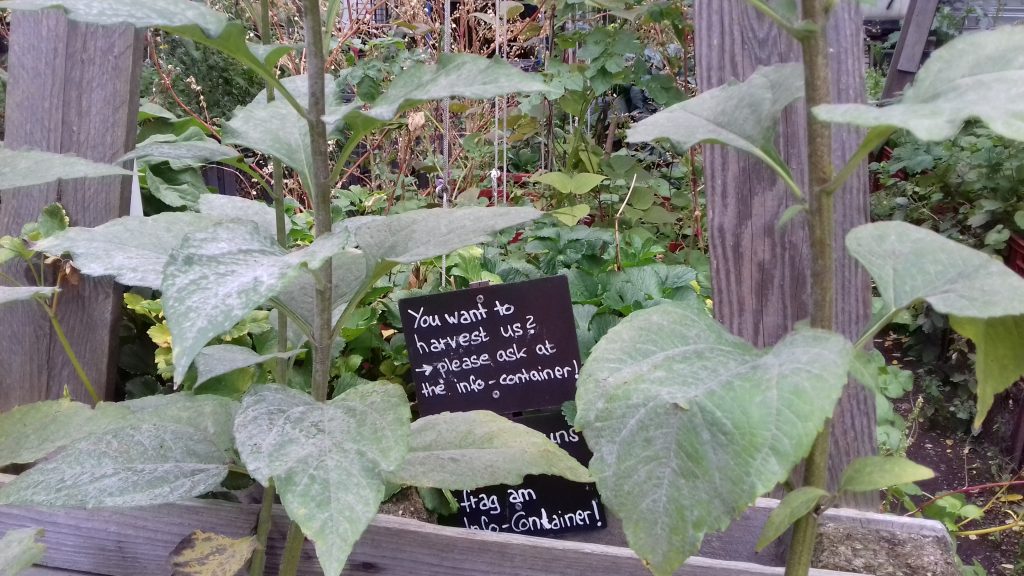 You want to
harvest us?
→ please ask at
the info-container!
uns
frag am
Info-Container!